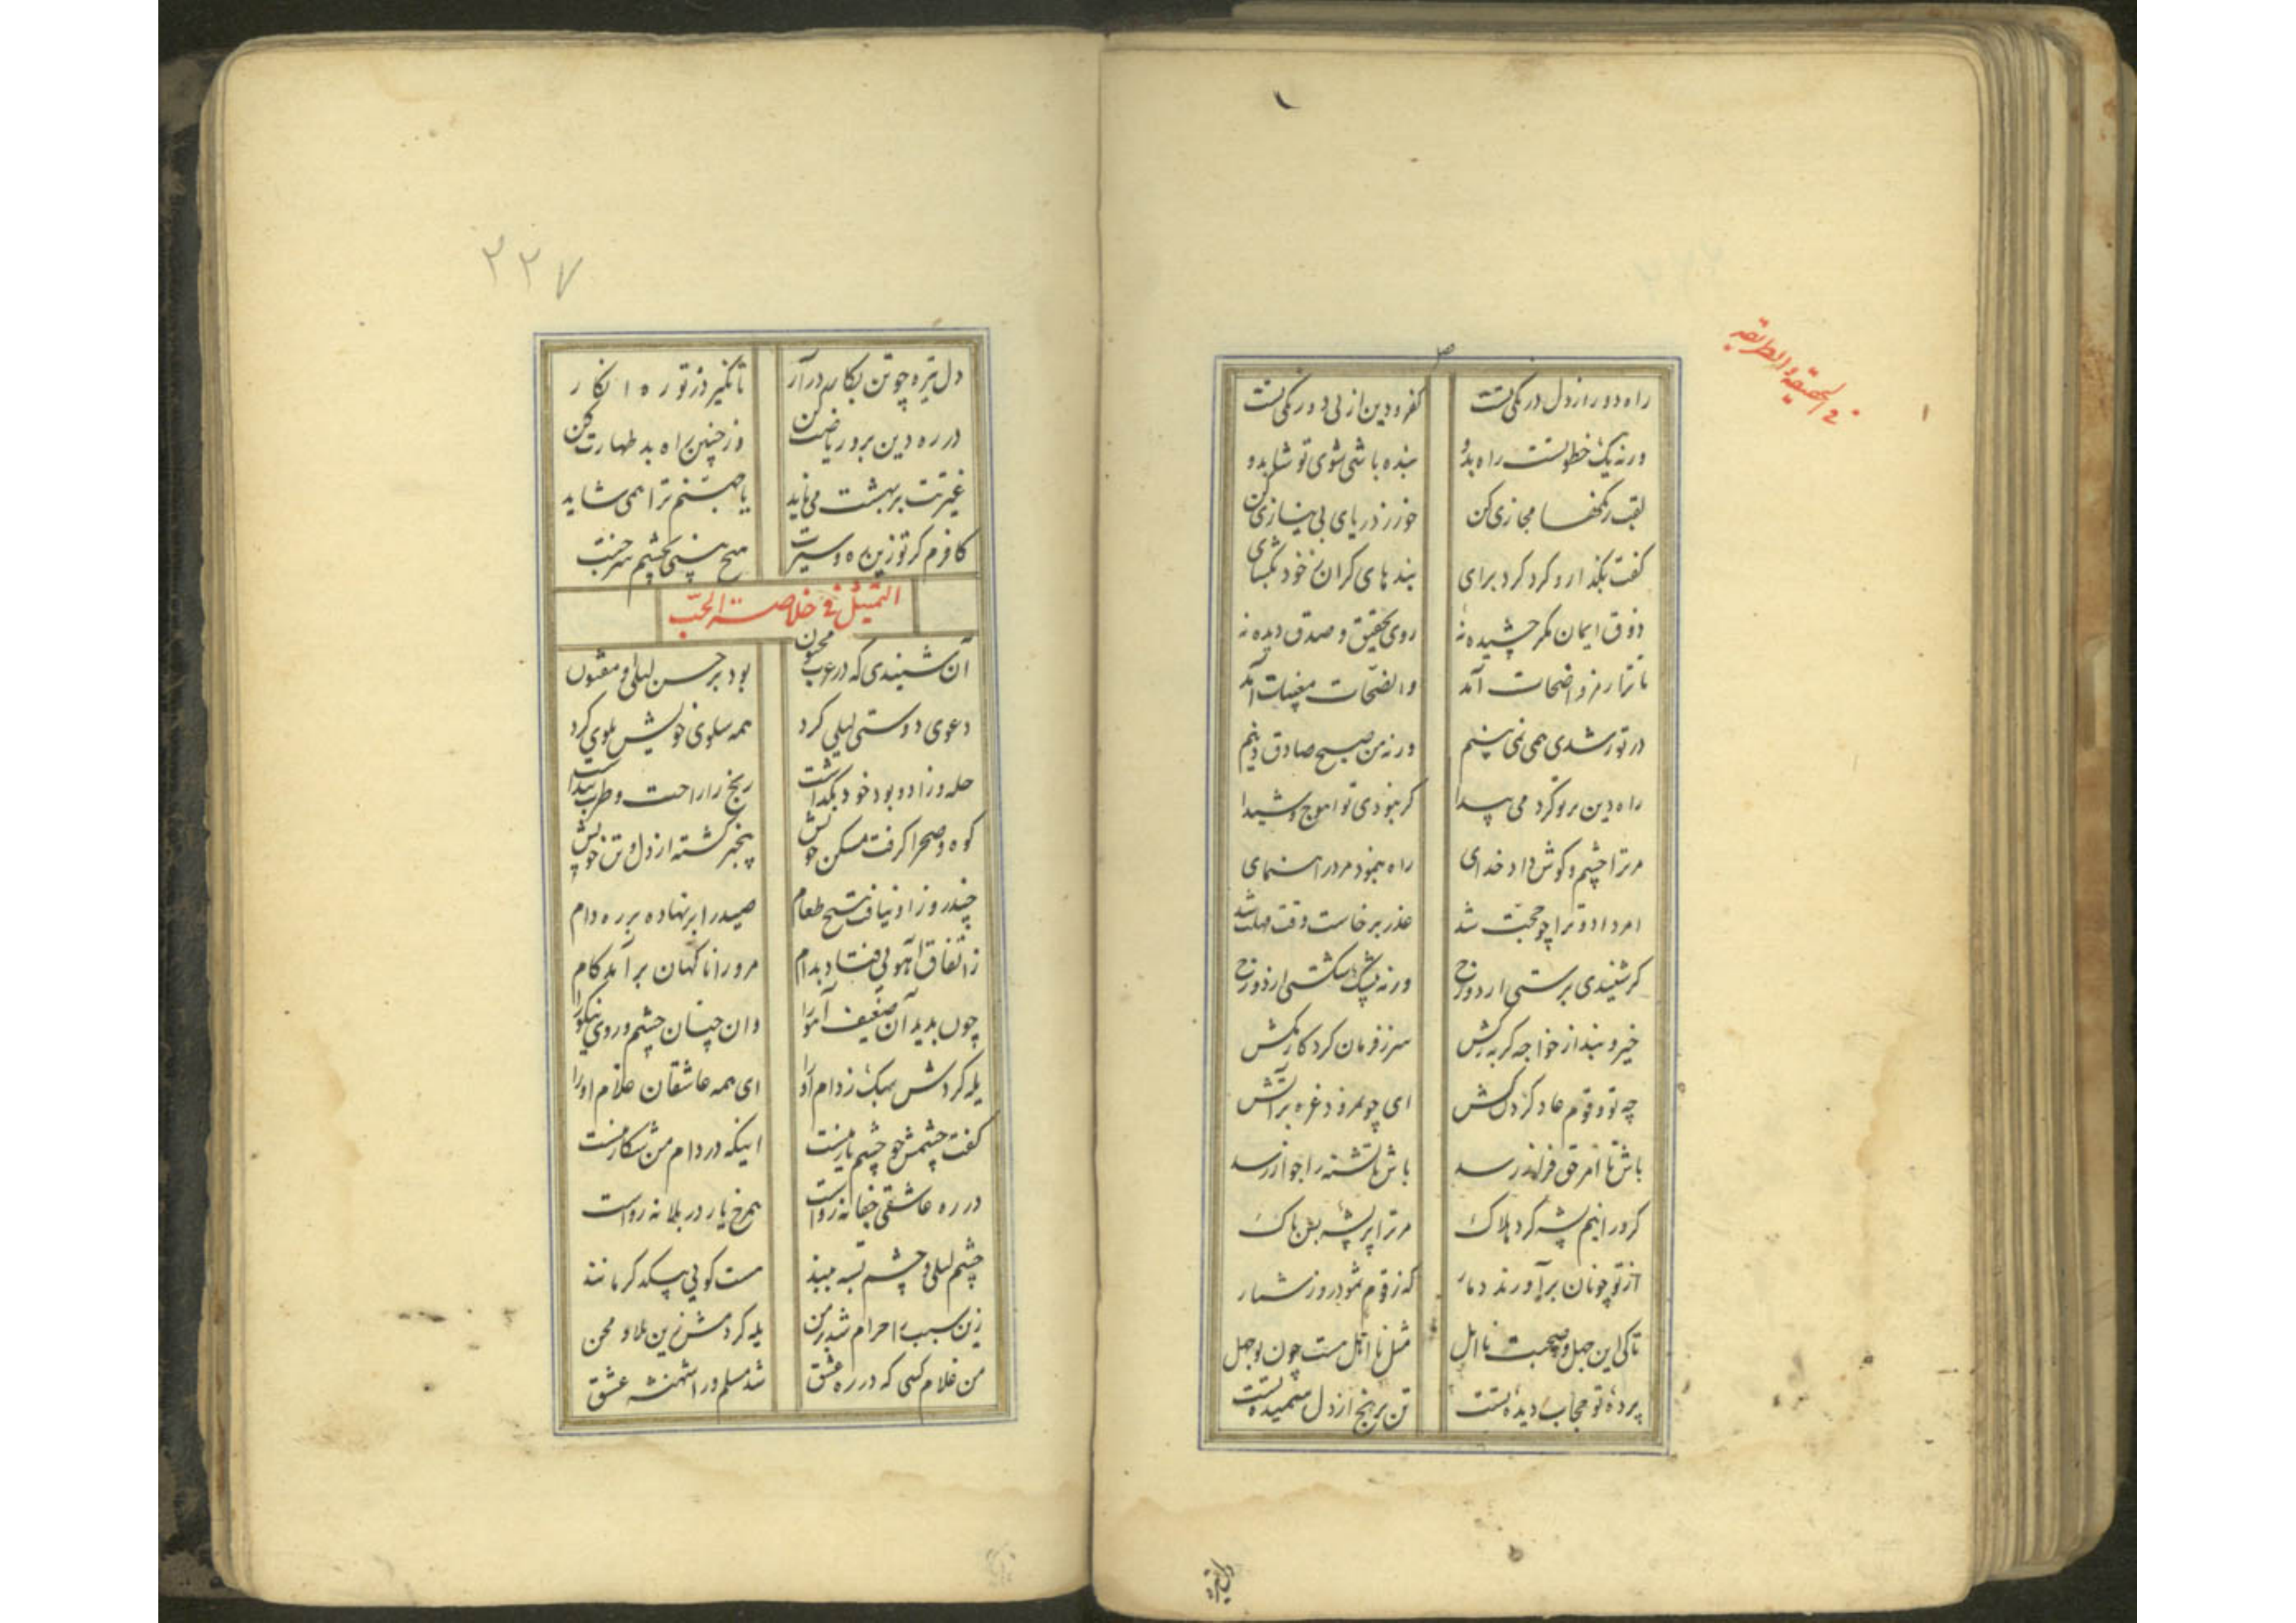 في الحقيقة والطريقة
راه دور از دل درنگی تست
کفر و دین از پی دورنگی تست
ورنه یک خطوتست راه بدو
بنده باشی شوی تو شاه بدو
لقب رنگها مجازی کن
خور ز دریای بی نیازی کن
گفت بگذار و گرد کرد برای
بندهای گران ز خود بگشای
ذوق ایمان مگر چشیده نهٔ
روی تحقیق و صدق دیده نهٔ
تا ترا رمز واضحات آمد
واضحات مغیبات آمد
در تو رشدی همی نمی بینم
ورنه من صبح صادق دینم
راه دین بر تو کرد می پیدا
گر نبودی تو اهوج و شیدا
مر ترا چشم و گوش داد خدای
راه بنمود مرد راهنمای
امر داد و ترا چو حجت شد
عذر برخاست وقت مهلت شد
گر شنیدی برستی از دوزخ
ورنه پیشک شکستی از دوزخ
خیره بنده از خواجه گر به رکش
سر ز فرمان کردگار مکش
چه تو و قوم عاد گردن کش
ای چو نمرود غره بر آتش
باش تا امر حق فراز رسد
باش تا پشه را جواز رسد
گر ورا نیم پشه کرد هلاک
مر ترا پر پشه بس باک
از تو چونان برآورند دمار
که ز قوم ثمود روز شمار
تا کی این جهل و صحبت نااهل
مثل نااهل هست چون بوجهل
پردهٔ تو حجاب دیدهٔ تست
تن برنج از دل ستمیدهٔ تست
۲۲۷
دل تیره چو تن بکار درآر
تا نگیرد ز تو ره انکار
در ره دین برو ریاضت کن
وز چنین راه بد طهارت کن
غیرتت بر بهشت می ناید
یا جهنم ترا همی شاید
کافرم گر تو زین ره و سیرت
هیچ بینی بچشم سر جنت
التمثیل فی خلاصة الحب
آن شنیدی که در عرب مجنون
بود بر حسن لیلی او مفتون
دعوی دوستی لیلی کرد
همه سلوی خویش بلوی کرد
حله و زاد و بود خود بگذاشت
رنج را راحت و طرب پنداشت
کوه و صحرا گرفت مسکن خویش
بیخبر گشته از دل و تن خویش
چند روز او نیافت هیچ طعام
صید را بر نهاده بر ره دام
ز اتفاق آهویی فتاد بدام
مرد را ناگهان برآمد کام
چون بدید آن ضعیف آهو را
وان چنان چشم و روی نیکو را
یله کردش سبک ز دام او را
ای همه عاشقان غلام او را
گفت چشمش چو چشم یار منست
اینکه در دام من شکار منست
در ره عاشقی جفا نه رواست
همرخ یار در بلا نه رواست
چشم لیلی و چشم بسته ببند
هست گویی بیکدگر مانند
زین سبب را حرام شد بر من
یله کردمش زین بلا و محن
من غلام کسی که در ره عشق
شد مسلم ورا شهنشه عشق
دل تیره